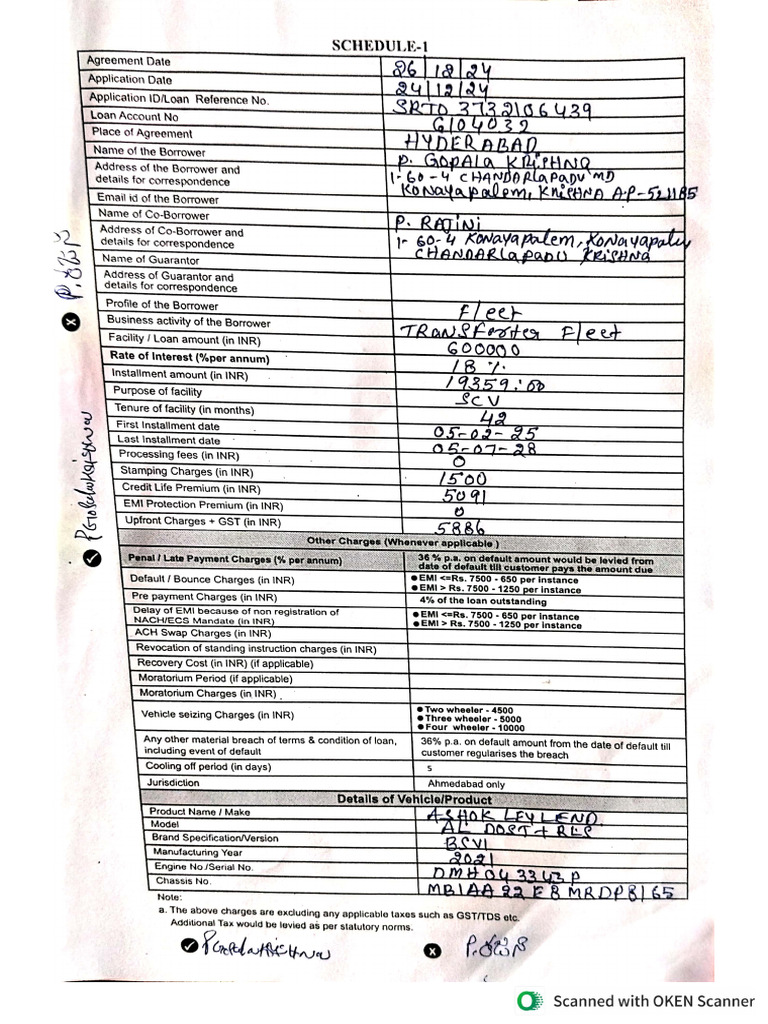 SCHEDULE-1
Agreement Date 26/12/24
Application Date 24/12/24
Application ID/Loan Reference No. SRTO 3732106439
Loan Account No 6104032
Place of Agreement HYDERABAD
Name of the Borrower P. GOPALA KRISHNA
Address of the Borrower and 1-60-4 CHANDARLAPADU MD
details for correspondence KONAYAPALEM, KRISHNA A.P-521185
Email id of the Borrower
Name of Co-Borrower P. RAJINI
Address of Co-Borrower and 1-60-4 KONAYAPALEM,
details for correspondence CHANDARLAPADU KRISHNA
Name of Guarantor
Address of Guarantor and
details for correspondence
Profile of the Borrower Fleet
Business activity of the Borrower TRANSPorter Fleet
Facility / Loan amount (in INR) 600000
Rate of Interest (%per annum) 18 %
Installment amount (in INR) 19359.00
Purpose of facility SCV
Tenure of facility (in months) 42
First Installment date 05-02-25
Last Installment date 05-07-28
Processing fees (in INR) 0
Stamping Charges (in INR) 1500
Credit Life Premium (in INR) 5091
EMI Protection Premium (in INR) 0
Upfront Charges + GST (in INR) 5886
Other Charges (Whenever applicable )
Penal / Late Payment Charges (% per annum) 36 % p.a. on default amount would be levied from
date of default till customer pays the amount due
Default / Bounce Charges (in INR) ● EMI <=Rs. 7500 - 650 per instance
● EMI > Rs. 7500 - 1250 per instance
Pre payment Charges (in INR) 4% of the loan outstanding
Delay of EMI because of non registration of ● EMI <=Rs. 7500 - 650 per instance
NACH/ECS Mandate (in INR) ● EMI > Rs. 7500 - 1250 per instance
ACH Swap Charges (in INR)
Revocation of standing instruction charges (in INR)
Recovery Cost (in INR) (if applicable)
Moratorium Period (if applicable)
Moratorium Charges (in INR)
● Two wheeler - 4500
Vehicle seizing Charges (in INR) ● Three wheeler - 5000
● Four wheeler - 10000
Any other material breach of terms & condition of loan, 36% p.a. on default amount from the date of default till
including event of default customer regularises the breach
Cooling off period (in days) 5
Jurisdiction Ahmedabad only
Details of Vehicle/Product
Product Name / Make ASHOK LEYLEND
Model AL DOST + RLS
Brand Specification/Version BSVI
Manufacturing Year 2021
Engine No /Serial No. DMH043343P
Chassis No. MB1AA22E8MRDP8165
Note:
a. The above charges are excluding any applicable taxes such as GST/TDS etc.
Additional Tax would be levied as per statutory norms.
P. రజిని
Scanned with OKEN Scanner